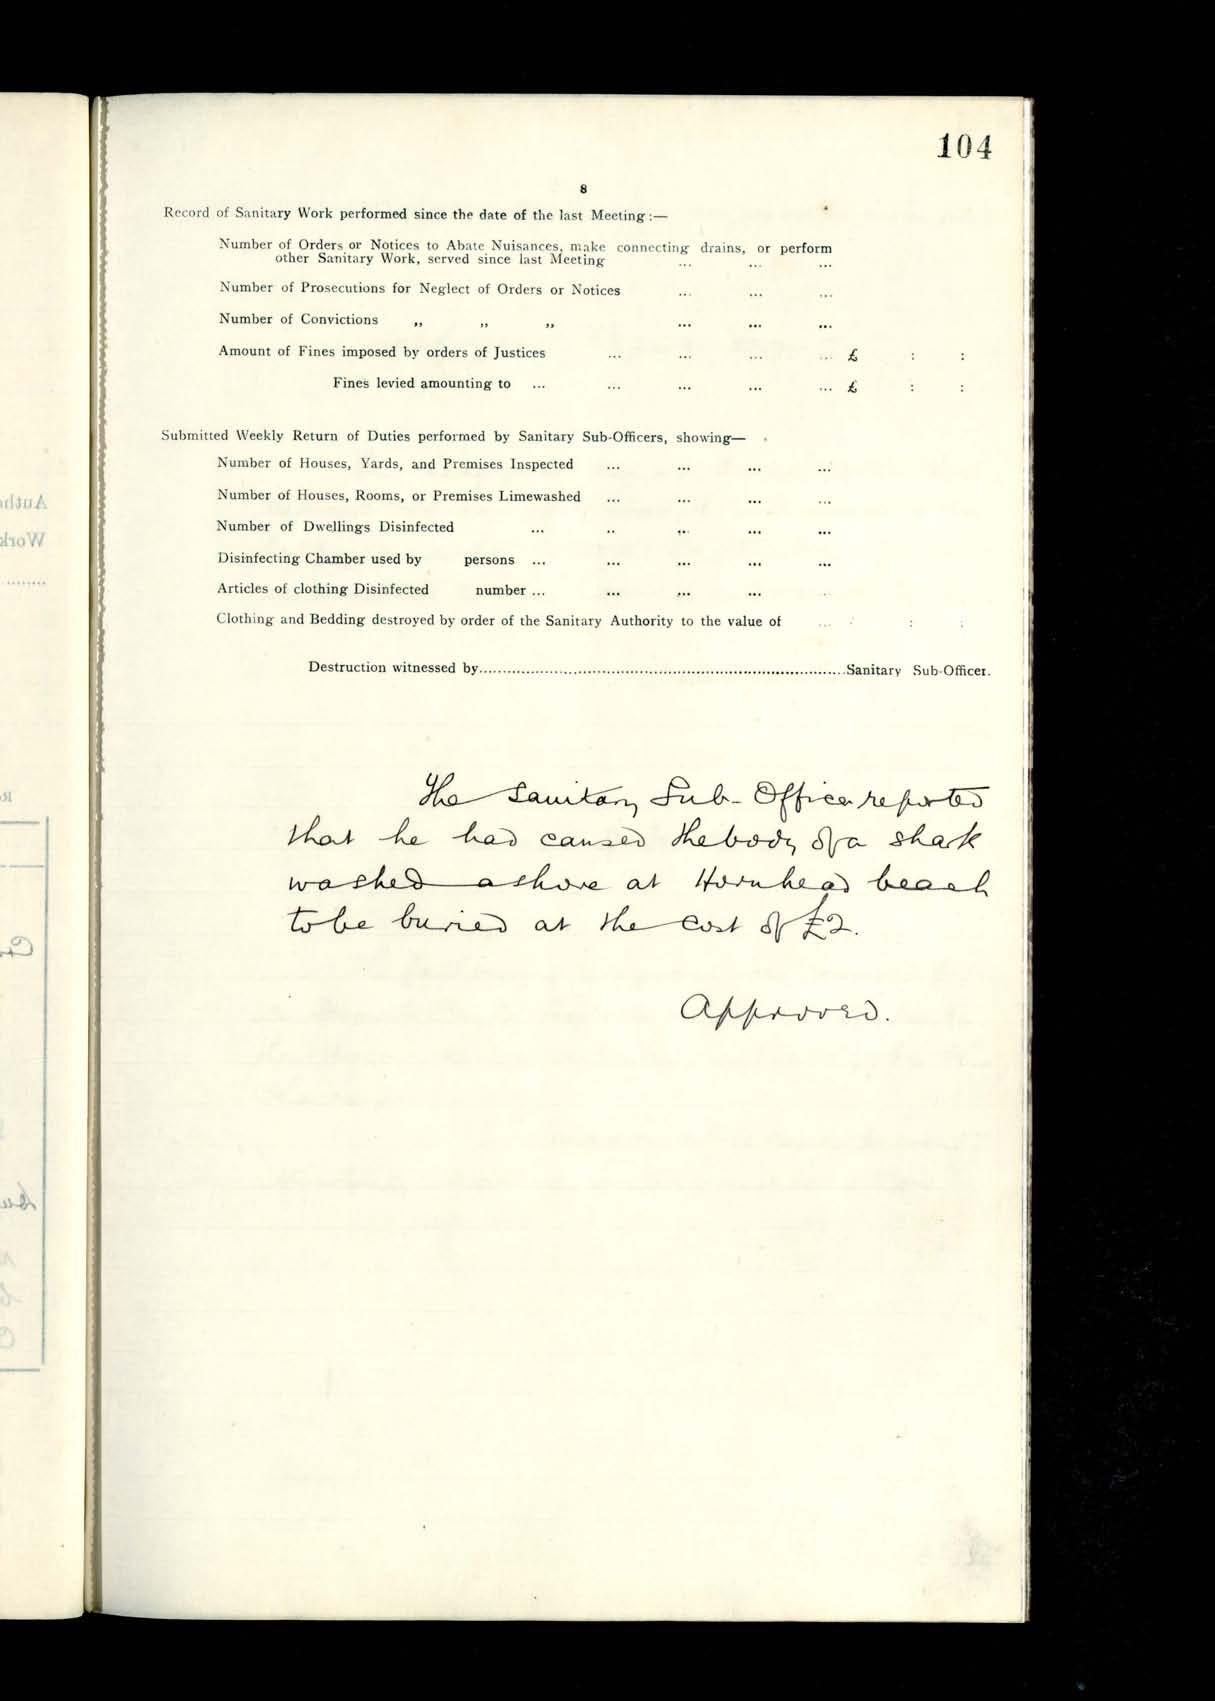 104
8
Record of Sanitary Work performed since the date of the last Meeting :—
Number of Orders or Notices to Abate Nuisances, make connecting drains, or perform
other Sanitary Work, served since last Meeting ... ... ...
Number of Prosecutions for Neglect of Orders or Notices ... ... ...
Number of Convictions ,, ,, ,, ... ... ...
Amount of Fines imposed by orders of Justices ... ... ... ... £ : :
Fines levied amounting to ... ... ... ... ... £ : :
Submitted Weekly Return of Duties performed by Sanitary Sub-Officers, showing—
Number of Houses, Yards, and Premises Inspected ... ... ... ...
Number of Houses, Rooms, or Premises Limewashed ... ... ... ...
Number of Dwellings Disinfected ... .. ... ... ...
Disinfecting Chamber used by persons ... ... ... ... ...
Articles of clothing Disinfected number ... ... ... ... ..
Clothing and Bedding destroyed by order of the Sanitary Authority to the value of ... : :
Destruction witnessed by..........................................................................Sanitary Sub-Officer.
The Sanitary Sub-Officer reported
that he had caused the body of a shark
washed ashore at Hornhead beach
to be buried at the cost of £2.
Approved.